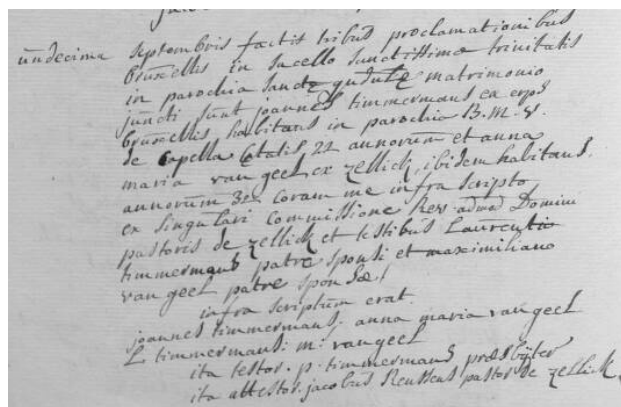 undecima septembris factis tribus proclamationibus
bruxellis in sacello sanctissimæ trinitatis
in parochia sanctę gudulę matrimonio
juncti sunt joannes timmermans ex erps
bruxellis habitans in parochia B. M. V.
de capella ętatis 22 annorum et anna
maria van geel ex zellick, ibidem habitans.
annorum coram me infra scripto
ex singulari commissione Rev. admod Domini
pastoris de zellick et testibus Laurentio
timmermans patre sponsi et maximiliano
van geel patre sponsæ /
infra scriptum erat.
joannes timmermans. anna maria van geel
L timmermans: m: van geel
ita testor. p: timmermans præsbÿter
ita attestor. jacobus Reussens pastor de zellick.